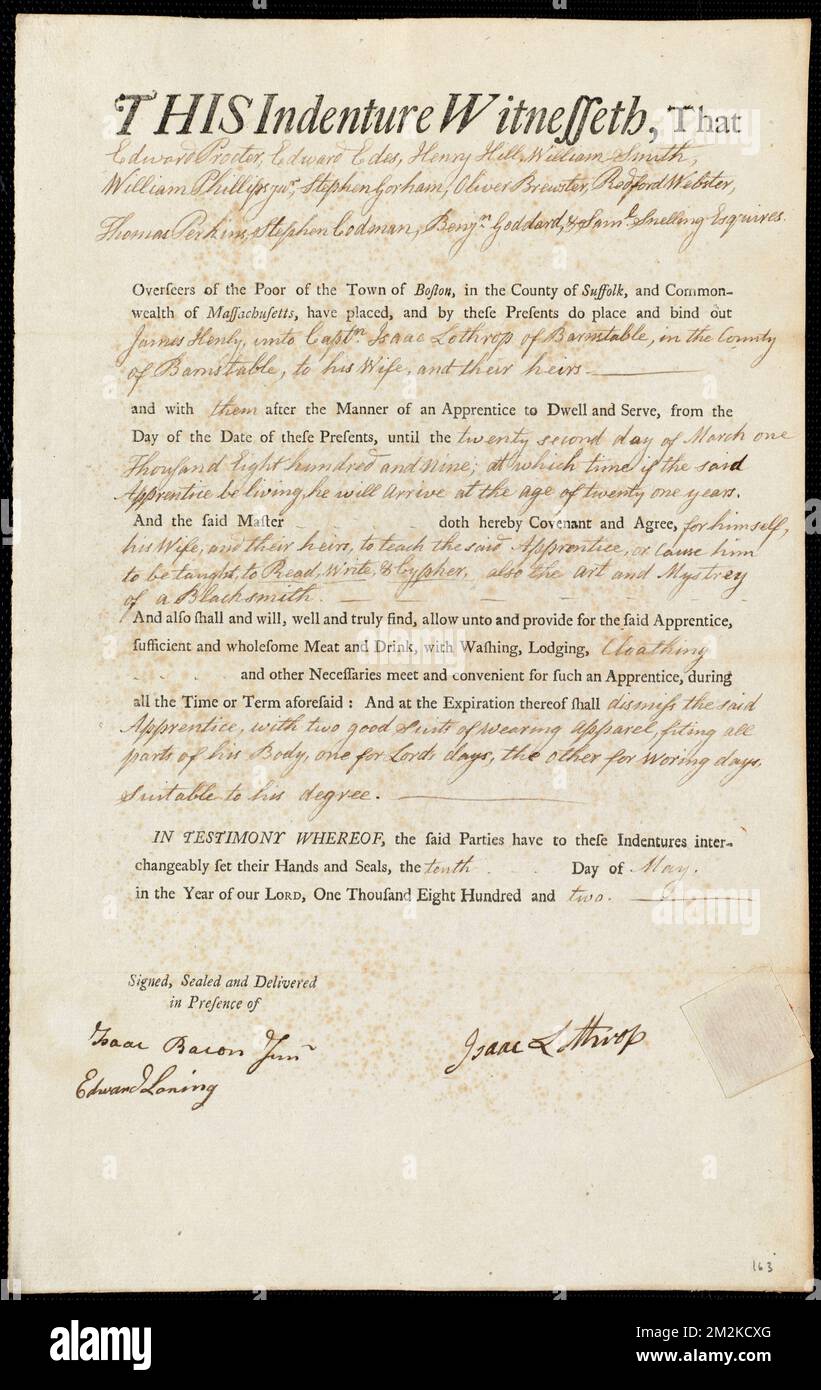 THIS Indenture Witneſſeth, That
Edward Procter, Edward Edes, Henry Hill, William Smith,
William Phillips junr, Stephen Gorham, Oliver Brewster, Redford Webster,
Thomas Perkins, Stephen Codman, Benjn Goddard, & Saml Snelling Esquires.
Overſeers of the Poor of the Town of Boſton, in the County of Suffolk, and Common-
wealth of Maſſachuſetts, have placed, and by theſe Preſents do place and bind out
James Henly, unto Captn Isaac Lothrop of Barnstable, in the County
of Barnstable, to his Wife, and their heirs
and with them after the Manner of an Apprentice to Dwell and Serve, from the
Day of the Date of theſe Preſents, until the twenty second day of March one
Thouſand Eight hundred and Nine; at which time if the said
Apprentice be living, he will arrive at the age of twenty one years.
And the ſaid Maſter doth hereby Covenant and Agree, for himself,
his Wife, and their heirs, to teach the said Apprentice, or Cause him
to be taught, to Read, Write, & Cypher, also the art and Mystrey
of a Blacksmith.
And alſo ſhall and will, well and truly find, allow unto and provide for the ſaid Apprentice,
ſufficient and wholeſome Meat and Drink, with Waſhing, Lodging, Cloathing
and other Neceſſaries meet and convenient for ſuch an Apprentice, during
all the Time or Term aforeſaid: And at the Expiration thereof ſhall dismiſs the said
Apprentice, with two good Suits of Wearing Apparel, fiting all
parts of his Body, one for Lords days, the other for Woring days,
Suitable to his degree.
IN TESTIMONY WHEREOF, the ſaid Parties have to theſe Indentures inter-
changeably ſet their Hands and Seals, the tenth Day of May.
in the Year of our LORD, One Thouſand Eight Hundred and two.
Signed, Sealed and Delivered
in Preſence of
Isaac Bacon Junr
Isaac Lothrop
Edward Loring
163
alamy
Image ID: 2M2KCXG
www.alamy.com